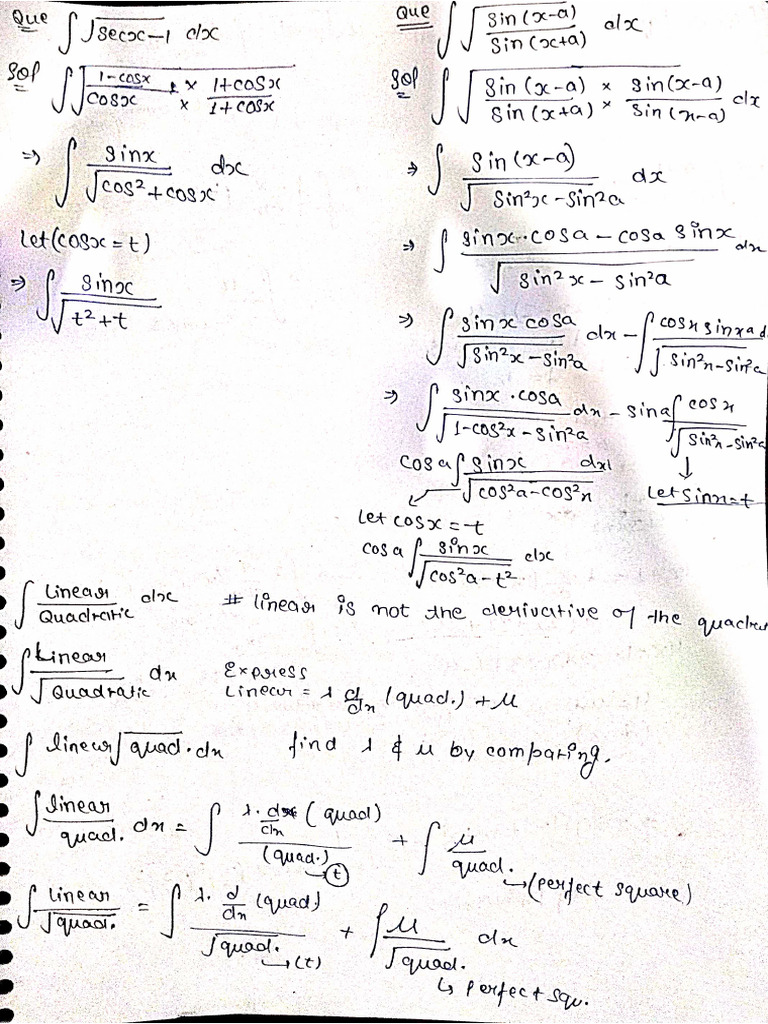 Que ∫ √(secx-1) dx
Sol ∫ √((1-cosx)/cosx × (1+cosx)/(1+cosx))
⇒ ∫ sinx/√(cos²+cosx) dx
Let (cosx = t)
⇒ ∫ sinx/√(t²+t)
Que ∫ √(sin(x-a)/sin(x+a)) dx
Sol ∫ √(sin(x-a)/sin(x+a) × sin(x-a)/sin(x-a)) dx
⇒ ∫ sin(x-a)/√(sin²x-sin²a) dx
⇒ ∫ (sinx·cosa - cosa sinx)/√(sin²x - sin²a) dx
⇒ ∫ sinx cosa/√(sin²x-sin²a) dx - ∫ cosx sinxa d/√(sin²x-sin²a)
⇒ ∫ sinx·cosa/√(1-cos²x-sin²a) dx - sina ∫ cosx/√(sin²x-sin²a)
cosa ∫ sinx/√(cos²a-cos²x) dx
Let sinx=t
Let cosx = t
cosa ∫ sinx/√(cos²a-t²) dx
∫ Linear/Quadratic dx # linear is not the derivative of the quadra
∫ Linear/√Quadratic dx Express
Linear = λ d/dx (quad.) + μ
∫ linear √quad. dx find λ & μ by comparing.
∫ linear/quad. dx = ∫ λ. d/dx (quad)/(quad.) + ∫ μ/quad.
→ (t) → (perfect square)
∫ Linear/√quad. = ∫ λ. d/dx (quad)/√quad. + ∫ μ/√quad. dx
→ (t)
↳ perfect squ.